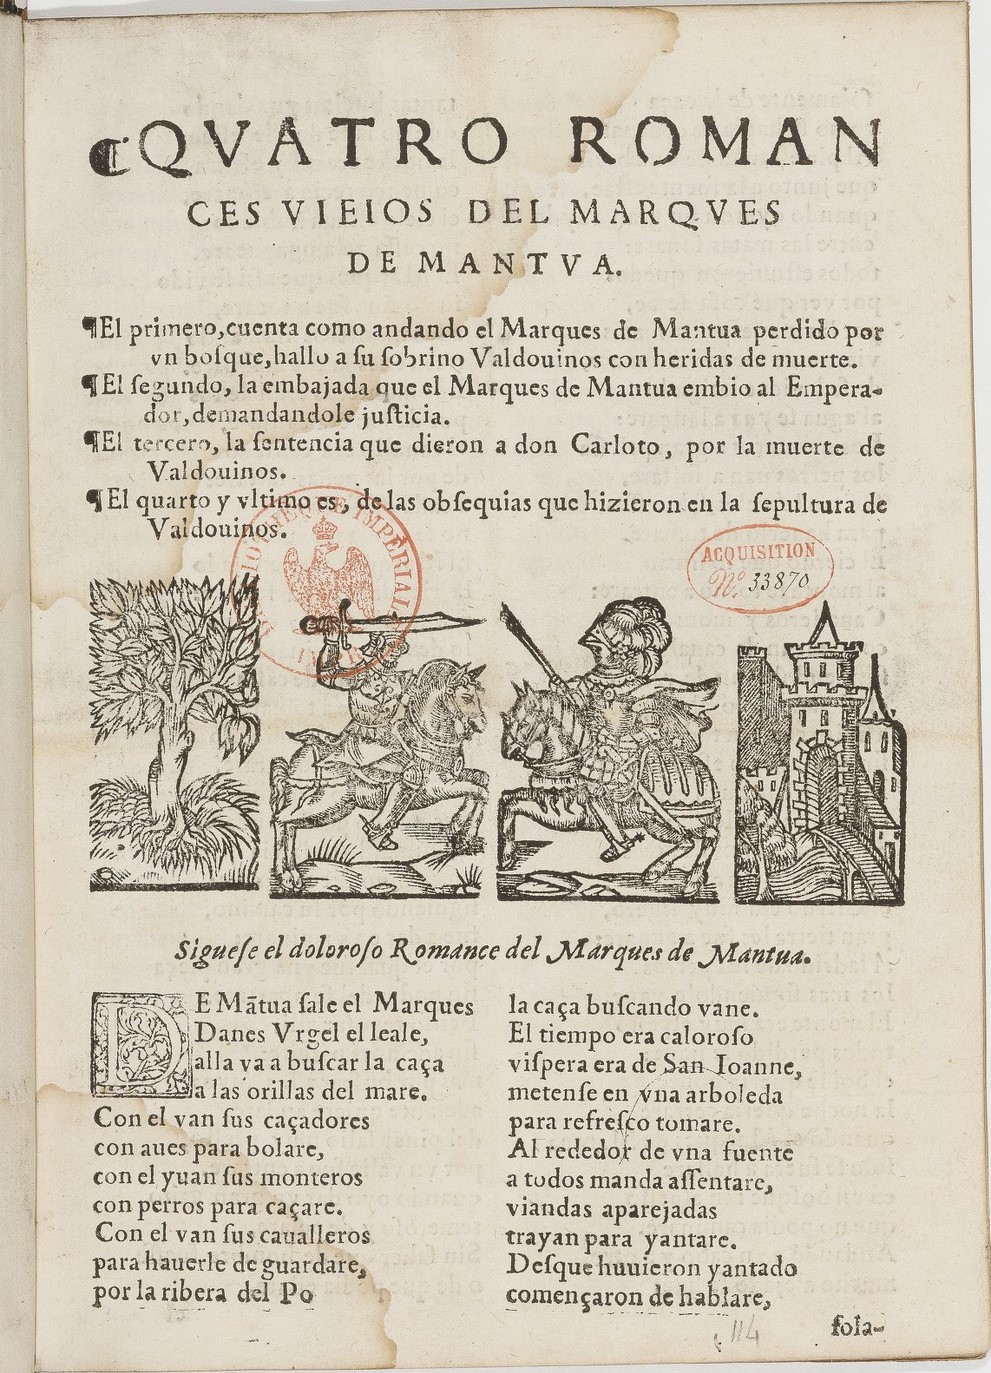 QVATRO ROMAN
CES VIEIOS DEL MARQVES
DE MANTVA.
¶El primero,cuenta como andando el Marques de Mantua perdido por
vn boſque,hallo a ſu ſobrino Valdouinos con heridas de muerte.
¶El ſegundo, la embajada que el Marques de Mantua embio al Empera-
dor,demandandole juſticia.
¶El tercero, la ſentencia que dieron a don Carloto, por la muerte de
Valdouinos.
¶El quarto y vltimo es, de las obſequias que hizieron en la ſepultura de
Valdouinos.
BIBLIOTHEQUE IMPÉRIALE
ACQUISITION
No. 33870
Sigueſe el doloroſo Romance del Marques de Mantua.
DE Mãtua ſale el Marques
Danes Vrgel el leale,
alla va a buſcar la caça
a las orillas del mare.
Con el van ſus caçadores
con aues para bolare,
con el yuan ſus monteros
con perros para caçare.
Con el van ſus caualleros
para hauerle de guardare,
por la ribera del Po
la caça buſcando vane.
El tiempo era caloroſo
viſpera era de San Ioanne,
metenſe en vna arboleda
para refreſco tomare.
Al rededor de vna fuente
a todos manda aſſentare,
viandas aparejadas
trayan para yantare.
Deſque huuieron yantado
començaron de hablare,
ſola-
114